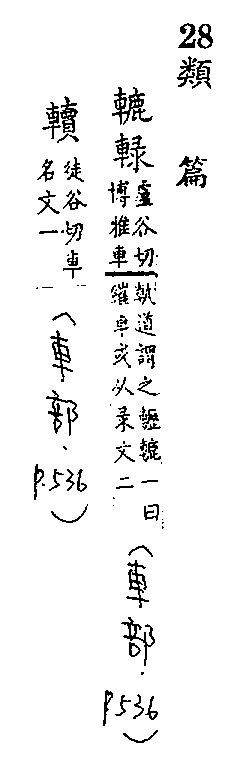 28 類篇
轆䡜 盧谷切博雅車軌道謂之轣轆一曰繀車或从彔文二 (車部．P.536)
徒谷切車名文一 (車部．P.536)